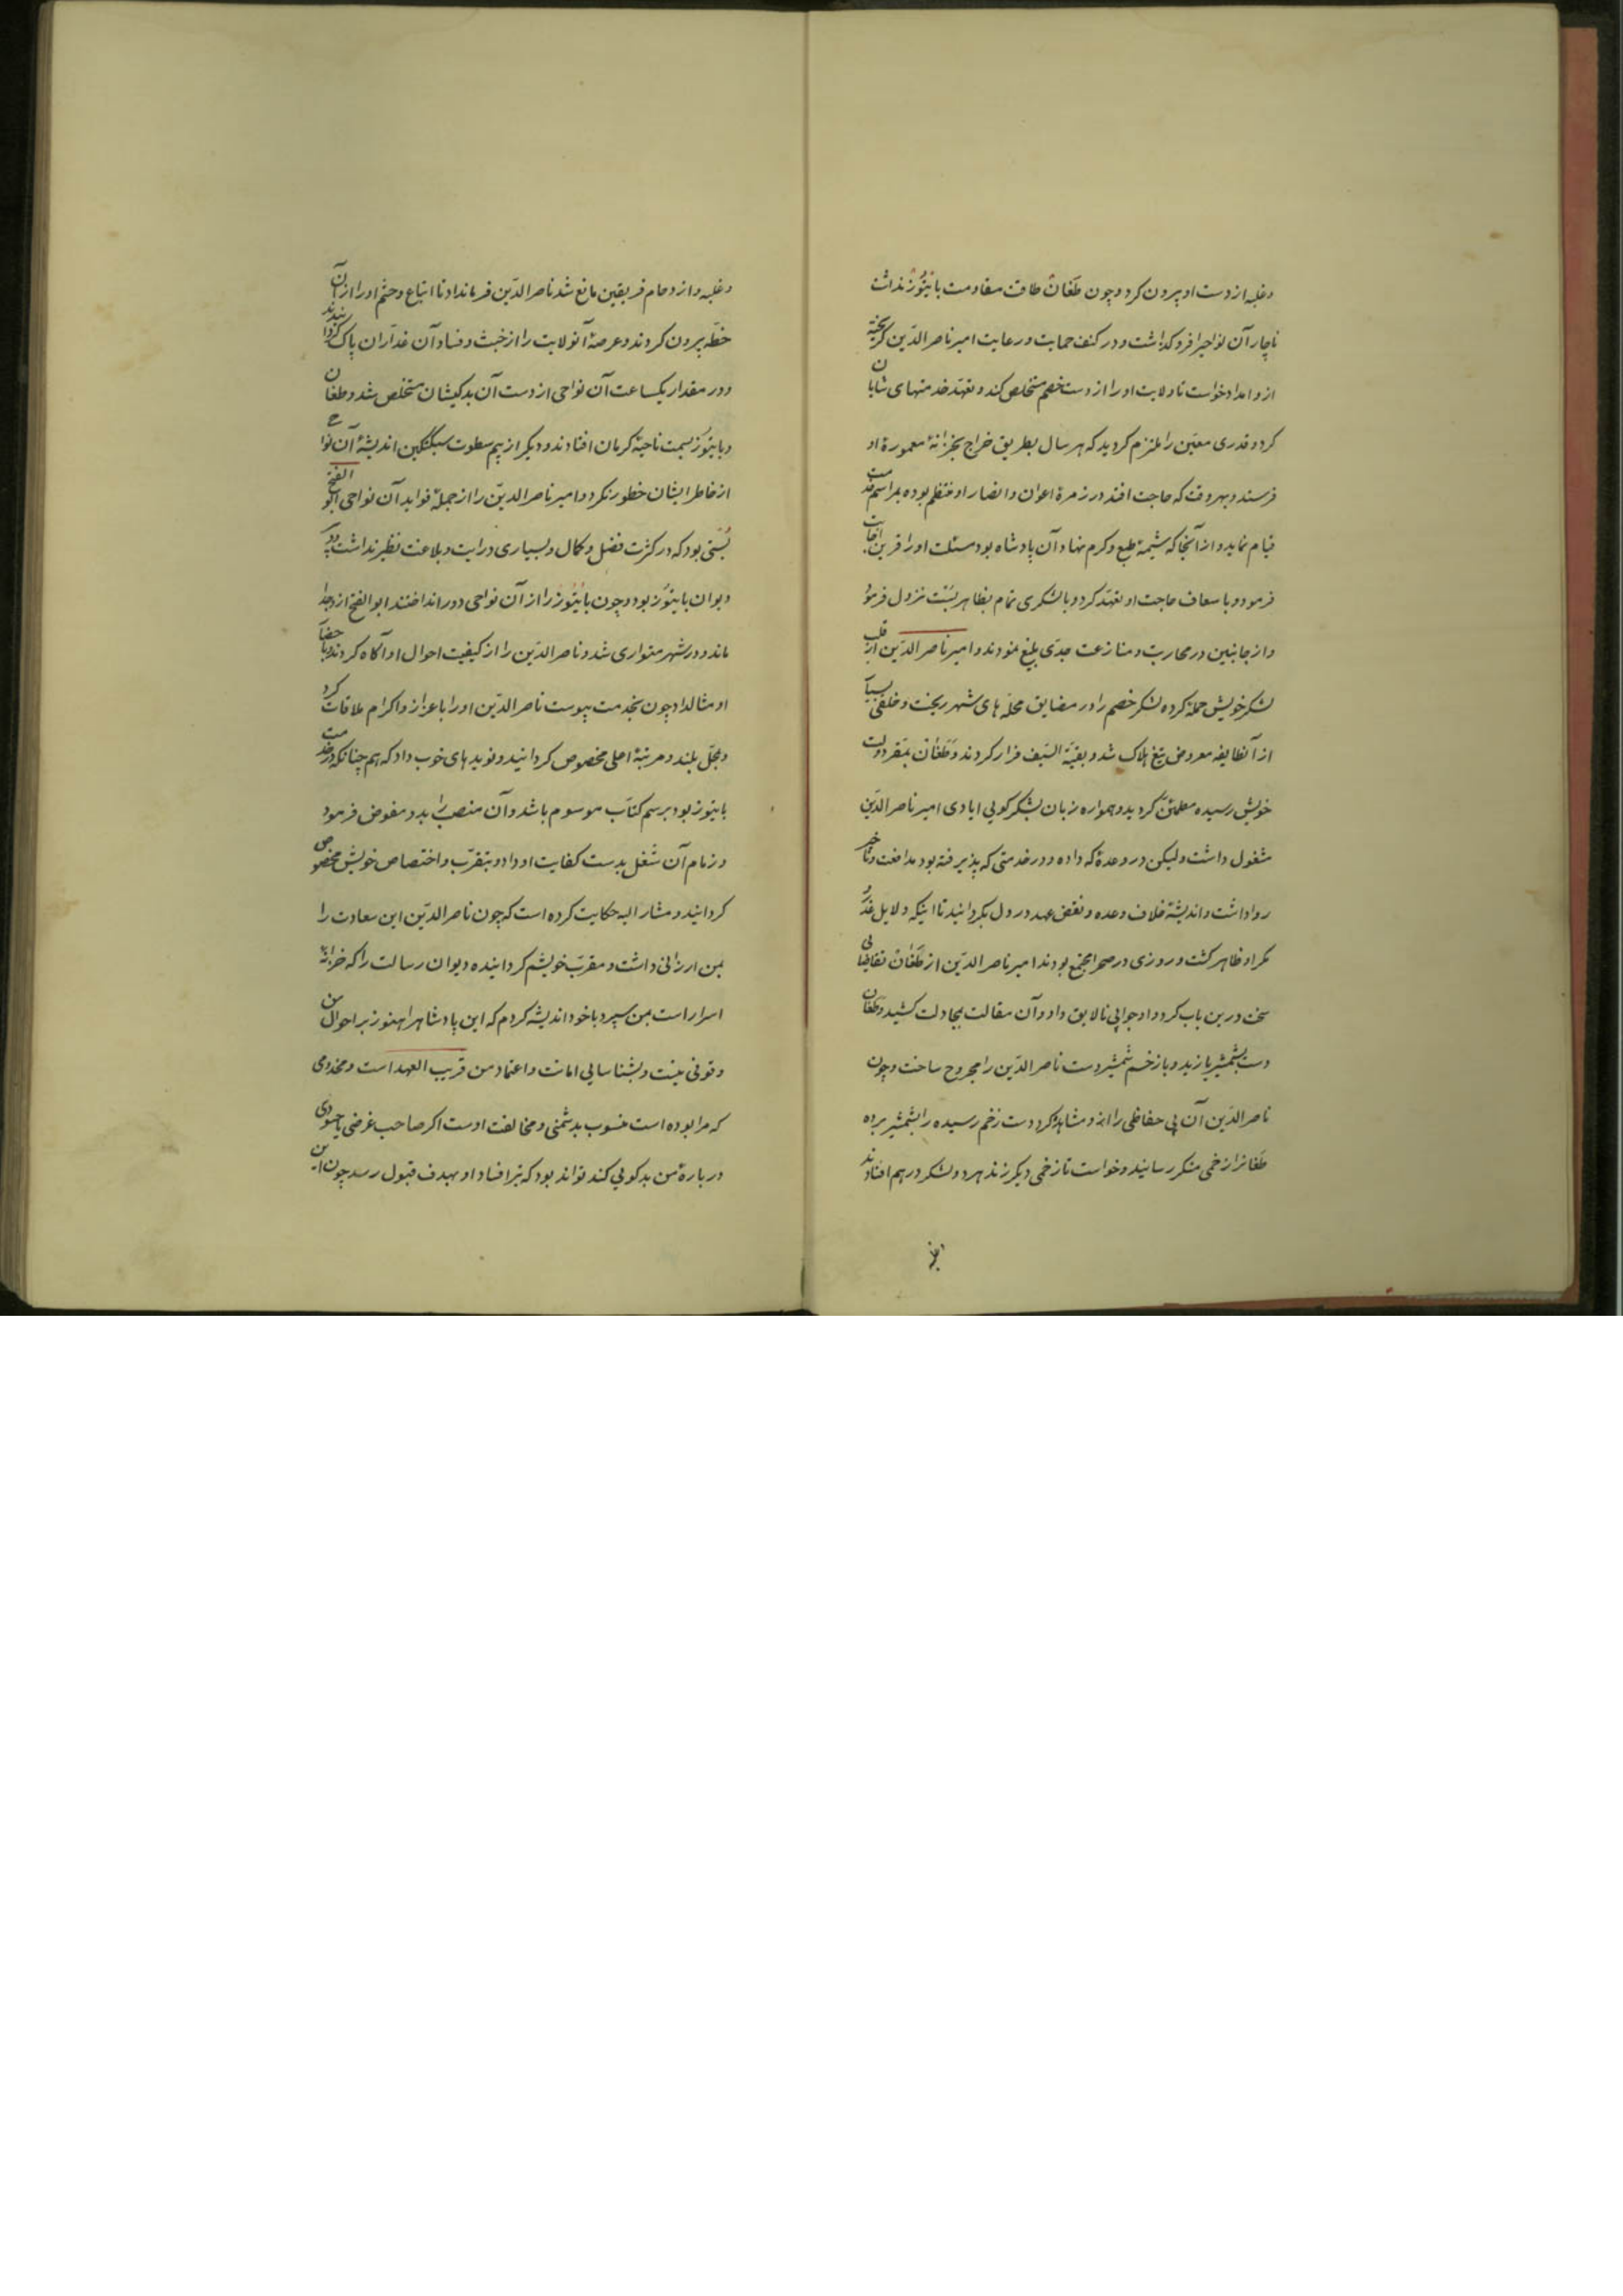 و غلبه از دست او بیرون کرد و چون طغان طاقت مقاومت بایتوز نداشت
ناچار آن نواحیرا فرو گذاشت و در کنف حمایت و رعایت امیر ناصر الدّین گریخته
از و امداد خواست تا ولایت او را از دست خصم متخلص کند و تعهّد خدمتهای شایان
کرد و قدری معیّن را ملتزم گردید که هر سال بطریق خراج بخزانهٔ معمورهٔ او
فرستد و بهر وقت که حاجت افتد در زمرهٔ اعوان و انصار او منتظم بوده بمراسم خدمت
قیام نماید و از آنجا که شیمهٔ طبع و کرم نهاد آن پادشاه بود مسئلت او را قرین اجابت
فرمود و باسعاف حاجت او تعهّد کرد و با لشکری تمام بظاهر بُست نزول فرمود
و از جانبین در محاربت و منازعت جدّی بلیغ نمودند و امیر ناصر الدّین از قلب
لشکر خویش حمله کرده لشکر خصم را در مضایق محلّه های شهر ریخت و خلقی بسیار
از آنطایفه معروض تیغ هلاک شد و بقیّة السّیف فرار کردند و طغان بمقرّ دولت
خویش رسیده مطمئن گردید و همواره زبان بشکر گویی ایادی امیر ناصر الدّین
مشغول داشت ولیکن در وعدهٔ که داده و در خدمتی که پذیرفته بود مدافعت و تأخیر
روا داشت و اندیشهٔ خلاف وعده و نقض عهد در دل بگردانید تا اینکه دلایل غدر
مکر او ظاهر گشت و روزی در صحرا مجتمع بودند امیر ناصر الدّین از طغان تقاضایی
سخت درین باب کرد و او جوابی نالایق داد و آن مقالت بمجادلت کشید و طغان
دست بشمشیر یازید و بازخم شمشیر دست ناصر الدّین را مجروح ساخت و چون
ناصر الدّین آن بی حفاظی را از و مشاهده کرد دست زخم رسیده را بشمشیر برده
طغانرا زخمی منکر رسانید و خواست تا زخمی دیگر زند هر دو لشکر در هم افتادند
و غلبه و ازدحام فریقین مانع شد ناصر الدّین فرمانداد تا اتباع و حشم او را از آن
خطّه بیرون کردند و عرصهٔ آنولایت را از خبث و فساد آن غدّاران پاک گردانیدند
و در مقدار یکساعت آن نواحی از دست آن بدکیشان متخلص شد و طغان
و بایتوز بسمت ناحیهٔ کرمان افتادند و دیگر از بیم سطوت سبکتگین اندیشهٔ آن نواح
از خاطر ایشان خطور نکرد و امیر ناصر الدیّن را از جملهٔ فواید آن نواحی ابو الفتح
بُستی بود که در کثرت فضل و کمال و بسیاری درایت و بلاغت نظیر نداشت و دبیر
دیوان بایتوز بود و چون بایتوز را از آن نواحی دور انداختند ابو الفتح ازو جدا
ماند و در شهر متواری شد و ناصر الدّین را از کیفیت احوال او آگاه کردند و باحضار
او مثالداد چون بخدمت پیوست ناصر الدّین او را با عزاز و اکرام ملاقات کرد
و بمحلّ بلند و مرتبهٔ اعلی مخصوص گردانید و نوید های خوب داد که هم چنانکه در خدمت
بایتوز بود برسم کتّاب موسوم باشد و آن منصب را بدو مفوض فرمود
و زمام آن شغل بدست کفایت او داد و بتقرّب و اختصاص خویش مخصوص
گردانید و مشار الیه حکایت کرده است که چون ناصر الدّین این سعادت را
بمن ارزانی داشت و مقرّب خویشم گردانیده دیوان رسالت را که خزانهٔ
اسرار است بمن سپرد با خود اندیشه کردم که این پادشاهرا هنوز بر احوال من
وقوفی نیست و بشناسایی امانت و اعتماد من قریب العهد است و مخدومی
که مرا بوده است منسوب بدشمنی و مخالفت اوست اگر صاحب غرضی یا حسودی
در بارهٔ من بدگویی کند تواند بود که تیر افساد او بهدف قبول رسد چون این